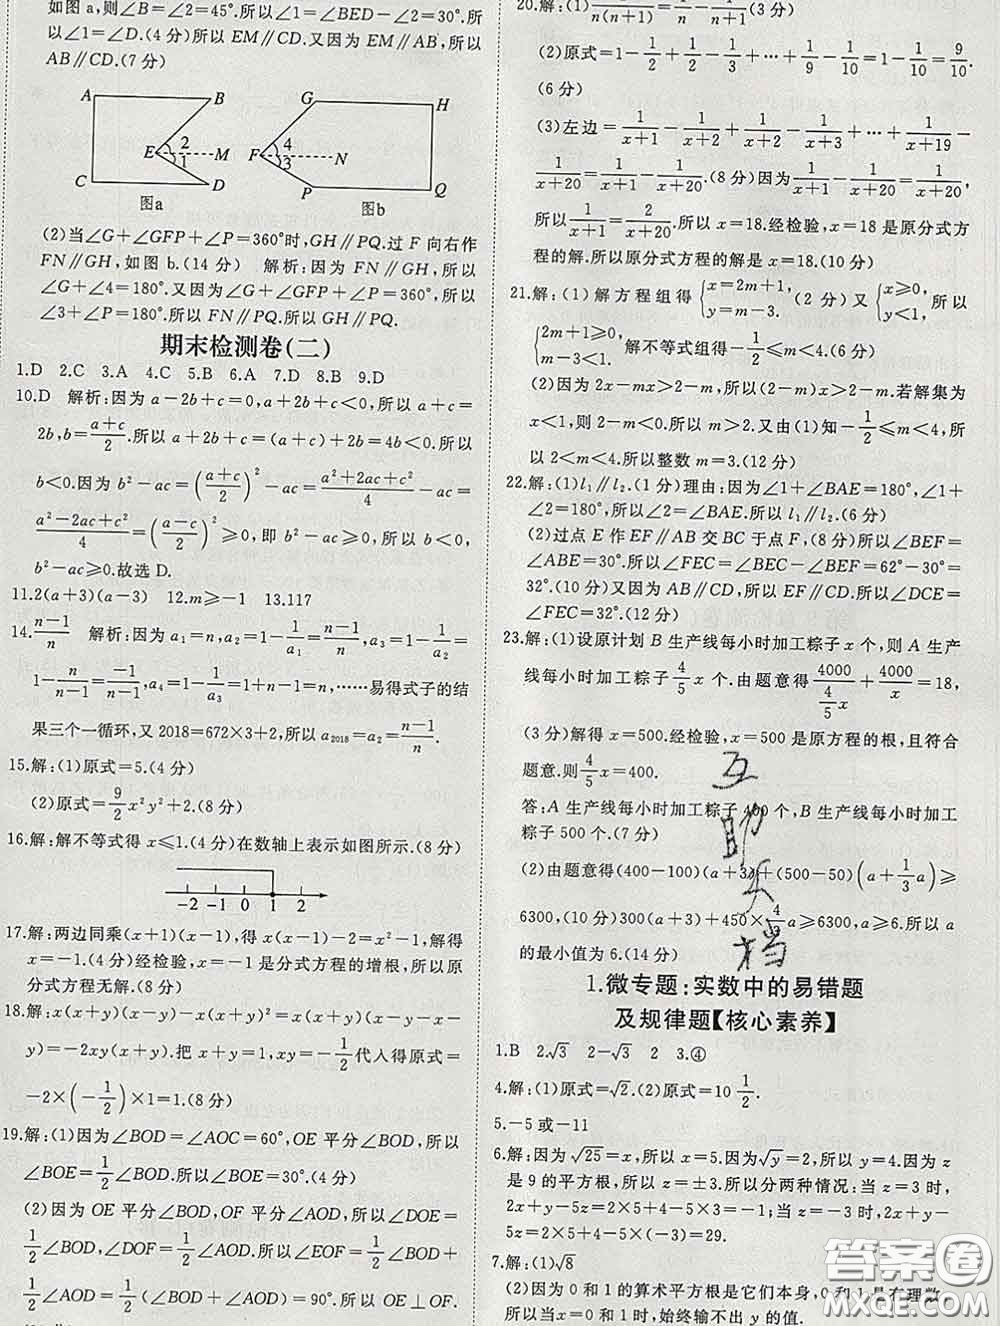 如图a,则∠2=45°.所以∠1=∠BED-∠2=30°.所
以∠1=∠D.(4分)所以EM∥CD.又因为EM∥AB,所以
AB∥CD.(7分)
A
B
2
E
M
1
C
D
图a
G
H
4
F
N
3
P
Q
图b
(2)当∠G+∠GFP+∠P=360°时,GH∥PQ.过F向右作
FN∥GH,如图b.(14分) 解析:因为FN∥GH,所以
∠G+∠4=180°.又因为∠G+∠GFP+∠P=360°,所以
∠3+∠P=180°.所以FN∥PQ.所以GH∥PQ.
期末检测卷(二)
1.D 2.C 3.A 4.C 5.B 6.A 7.D 8.B 9.D
10.D 解析:因为a-2b+c=0,a+2b+c<0,所以a+c=
2b,b=(a+c)/2.所以a+2b+c=(a+c)+2b=4b<0.所以
b<0.因为b²-ac=((a+c)/2)²-ac=(a²+2ac+c²)/4-ac=
(a²-2ac+c²)/4=((a-c)/2)²≥0,即b²-ac≥0,所以b<0,
b²-ac≥0.故选D.
11.2(a+3)(a-3) 12.m≥-1 13.117
14.(n-1)/n 解析:因为a₁=n,a₂=1-1/a₁=(n-1)/n,a₃=1-1/a₂=
1-n/(n-1)=-1/(n-1),a₄=1-1/a₃=1+n-1=n,……易得式子的结
果三个一循环,又2018=672×3+2,所以a₂₀₁₈=a₂=(n-1)/n.
15.解:(1)原式=5.(4分)
(2)原式=9/2x²y²+2.(8分)
16.解:解不等式得x≤1.(4分)在数轴上表示如图所示.(8分)
-2 -1 0 1 2
17.解:两边同乘(x+1)(x-1),得x(x-1)-2=x²-1,解得
x=-1.(4分)经检验,x=-1是分式方程的增根,所以原
分式方程无解.(8分)
18.解:x(x+y)(x-y)-x(x+y)²=x(x+y)(x-y-x-
y)=-2xy(x+y).把x+y=1,xy=-1/2代入得原式=
-2×(-1/2)×1=1.(8分)
19.解:(1)因为∠BOD=∠AOC=60°,OE平分∠BOD,所以
∠BOE=1/2∠BOD.所以∠BOE=30°.(4分)
(2)因为OE平分∠BOD,OF平分∠AOD,所以∠DOE=
1/2∠BOD,∠DOF=1/2∠AOD.所以∠EOF=1/2∠BOD+
1/2∠AOD=1/2(∠BOD+∠AOD)=90°.所以OE⊥OF.
20.解:(1)1/(n(n+1))=1/n-1/(n+1)(3分)
(2)原式=1-1/2+1/2-1/3+…+1/9-1/10=1-1/10=9/10.
(6分)
(3)左边=1/(x+1)-1/(x+2)+1/(x+2)-1/(x+3)+…+1/(x+19)-
1/(x+20)=1/(x+1)-1/(x+20).(8分)因为1/(x+1)-1/(x+20)=1/(x+20),
所以1/(x+1)=2/(x+20).所以x=18.经检验,x=18是原分式方
程的解.所以原分式方程的解是x=18.(10分)
21.解:(1)解方程组得{x=2m+1,y=m-3.(2分)又{x≥0,y<1,所以
{2m+1≥0,m-3<1.解不等式组得-1/2≤m<4.(6分)
(2)因为2x-mx>2-m,所以(2-m)x>2-m.若解集为
x<1,则2-m<0.所以m>2.又由(1)知-1/2≤m<4,所
以2<m<4.所以整数m=3.(12分)
22.解:(1)l₁∥l₂.(1分)理由:因为∠1+∠BAE=180°,∠1+
∠2=180°,所以∠2=∠BAE.所以l₁∥l₂.(6分)
(2)过点E作EF∥AB交BC于点F,(8分)所以∠BEF=
∠ABE=30°.所以∠FEC=∠BEC-∠BEF=62°-30°=
32°.(10分)又因为AB∥CD,所以EF∥CD.所以∠DCE=
∠FEC=32°.(12分)
23.解:(1)设原计划B生产线每小时加工粽子x个,则A生产
线每小时加工粽子4/5x个.由题意得4000/(4/5x)+4000/x=18,
(3分)解得x=500.经检验,x=500是原方程的根,且符合
题意.则4/5x=400.
答:A生产线每小时加工粽子400个,B生产线每小时加工
粽子500个.(7分)
(2)由题意得(400-100)(a+3)+(500-50)(a+1/3a)≥
6300,(10分)300(a+3)+450×4/3a≥6300,a≥6.所以a
的最小值为6.(14分)
1.微专题:实数中的易错题
及规律题【核心素养】
1.B 2.√3 2-√3 2 3.④
4.解:(1)原式=√2.(2)原式=10 1/2.
5.-5或-11
6.解:因为√25=x,所以x=5.因为√y=2,所以y=4.因为z
是9的平方根,所以z=±3.所以分两种情况:当z=3时,
2x+y-5z=2×5+4-5×3=-1;当z=-3时,2x+y
-5z=2×5+4-5×(-3)=29.
7.解:(1)√8
(2)因为0和1的算术平方根是它们本身,0和1是有理数,
所以当x=0和1时,始终输不出y的值.
答案圈
MXQE.COM